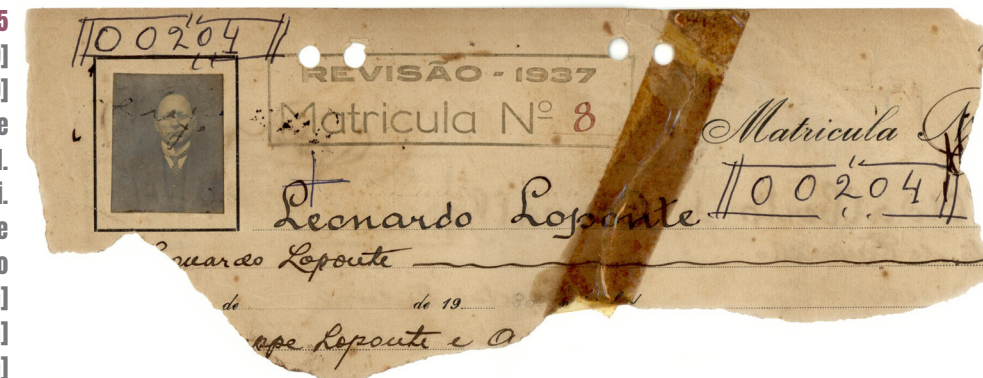 00204
REVISÃO - 1937
Matricula Nº 8
Matricula
00204
Leonardo Loponte
Loponte
de de 19
ppe Loponte e
5
]
]
e
l.
i.
e
o
]
]
]